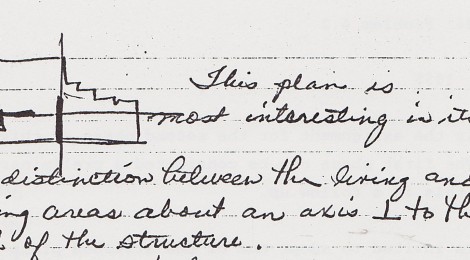 This plan is
most interesting in its
distinction between the living and
ing areas about an axis ⊥ to the
of the structure.